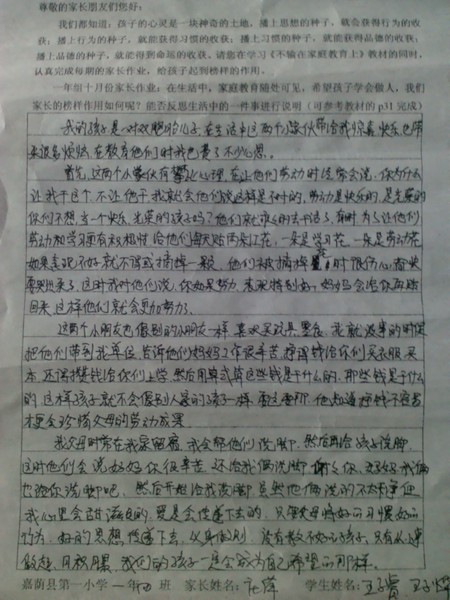 尊敬的家长朋友们您好：
我们都知道：孩子的心灵是一块神奇的土地，播上思想的种子，就会获得行为的收
获；播上行为的种子，就能获得习惯的收获；播上习惯的种子，就能获得品德的收获；
播上品德的种子，就能得到命运的收获。请您在学习《不输在家庭教育上》教材的同时，
认真完成每期的家长作业，给孩子起到榜样的作用。
一年组十月份家长作业：在生活中，家庭教育随处可见，希望孩子学会做人，我们
家长的榜样作用如何呢？能否反思生活中的一件事进行说明（可参考教材的 p31 完成）
我的孩子是一对双胞胎儿子，在生活中这两个小家伙带给我惊喜 快乐 也带
来很多烦恼，在教育他们时我也费了不少心思。
首先，这两个小家伙有攀比心理，在让他们劳动时经常会说：你为什么
让我干这个，不让他干，我就会他们说这样是不对的，劳动是快乐的，是光荣的
你们不想当一个快乐、光荣的孩子吗？他们就
劳动和学习更有积极性 给他们每天贴两朵红花，一朵是学习花，一朵是劳动花
如果表现不好就不得或摘掉一颗，他们被摘掉 时很伤心
这时我对他们说，你如果努力 表现特别好，妈妈会给你再贴
回来，这样他们就会更加努力了。
这两个小朋友也像别的小朋友一样，喜欢买玩具 零食，我就
把他们带到我单位，告诉他们妈妈工作很辛苦，挣得钱给你们买衣服 买
还得攒钱给你们上学，然后用算式算这些钱是干什么的，那些钱是干什么
的，这样孩子就不会像别人家的孩子一样 要这要那，他知道挣钱不容易
才更会珍惜父母的劳动成果。
我父母时常在我家留宿，我会帮他们洗脚，然后再给孩子洗脚，
这时他们会说 妈妈你很辛苦 还给我俩洗脚 谢谢你，
也给你洗脚吧，然后开始给我洗脚 虽然他俩洗的不太利索 但
我心里会甜滋滋的，爱是会传递下去的，只要父母将好的习惯 好的
行为、好的思想 传递下去，以身做则，没有教不好的孩子，只有从
做起，日积月累，我们的孩子一定会成为自己希望的那样。
嘉荫县第一小学一年四班 家长姓名： 学生姓名：